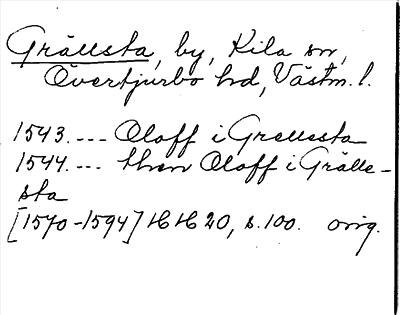 Grällsta, by, Kila sn,
Övertjurbo hd, Västm. l.
1543. --- Oloff i Grellessta
1544. --- then Oloff i Grälle-
sta
[1570-1594] HH 20, s. 100. orig.